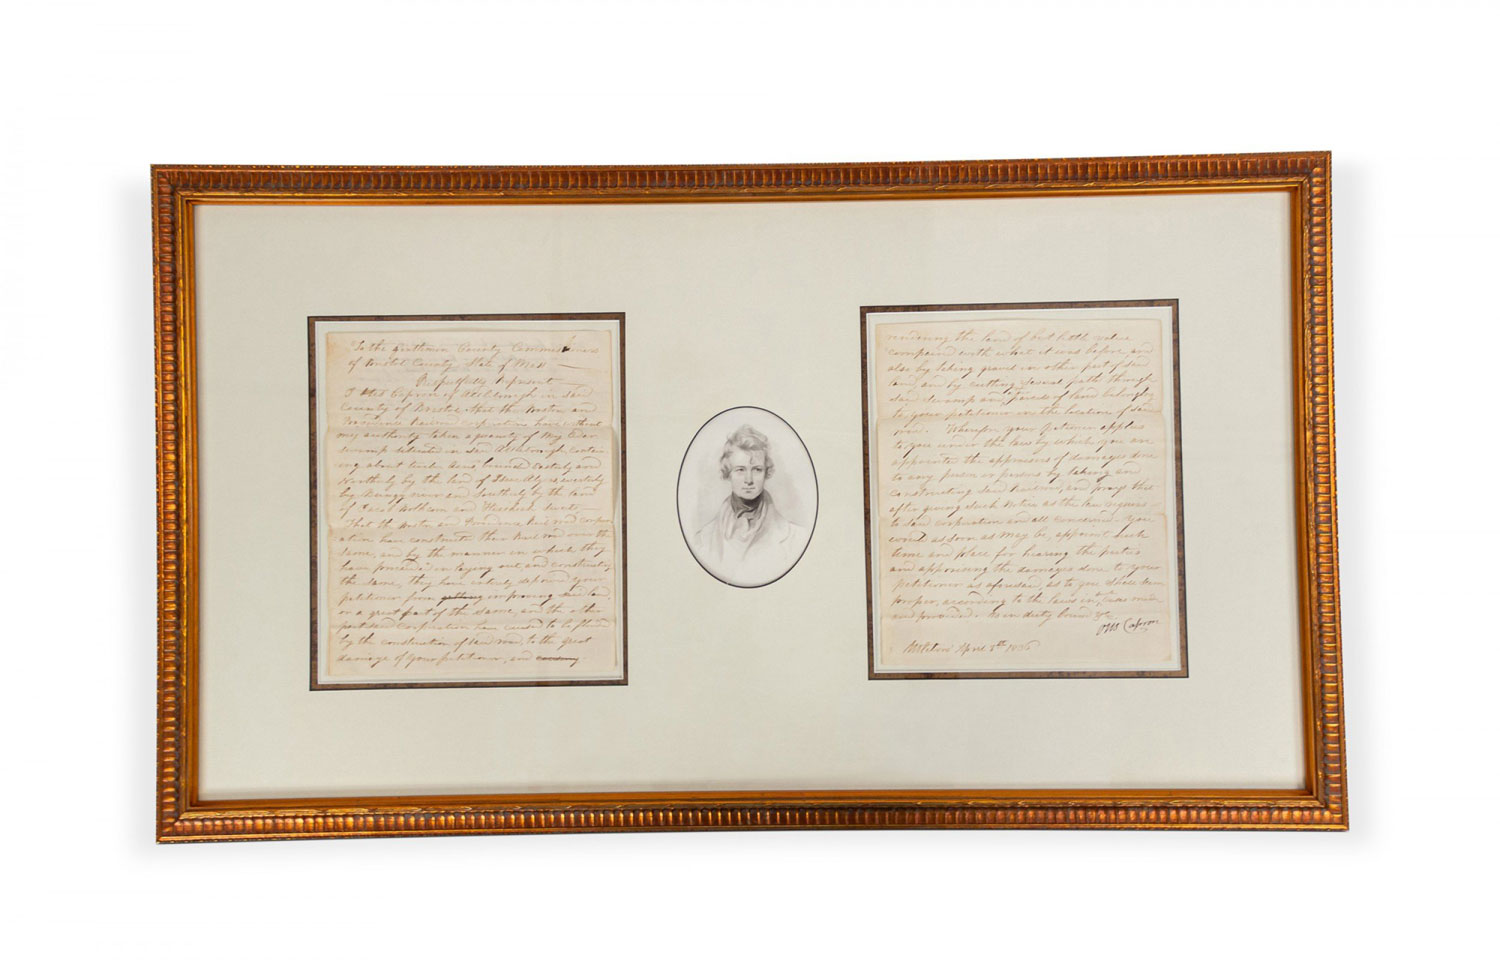 To the Gentlemen County Commissioners
of Bristol County State of Mass
Respectfully Represent
I Otis Capron of Attleborough in said
County of Bristol that the Boston and
Providence Railroad corporation have without
any authority taken a quantity of my Cedar
swamp situated in said Attleborough, contain
ing about twelve acres bound Easterly and
Northerly by the land of westerly
by and Southerly by the land
of and
That the Boston and Providence Rail road corpor
ation have constructed their Rail road over the
same, and by the manner in which they
have proceeded in laying out, and constructing
the same, they have entirely deprived your
petitioner from getting improving said land
or a great part of the same, and the other
part said corporation have caused to be flowed
by the construction of said road, to the great
damage of your petitioner, and
rendering the land of but little value
compaired with what it was before, and
also by taking gravel in other part of said
land, and by cutting several path through
said swamp and parcels of land belonging
to your petitioner in the location of said
road. Wherefore your petitioner applies
to you under the law by which you are
appointed the appraisers of damages done
to any person or persons by taking and
constructing said Railroad, and prays that
after giving such notice as the law requires
to said corporation and all concerned. You
would as soon as may be, appoint such
time and place for hearing the parties
and apprising the damages done to your
petitioner as aforesaid, as to you shall seem
proper, according to the laws in such case made
and provided. As in duty bound &c
Otis Capron
April 8th 1836